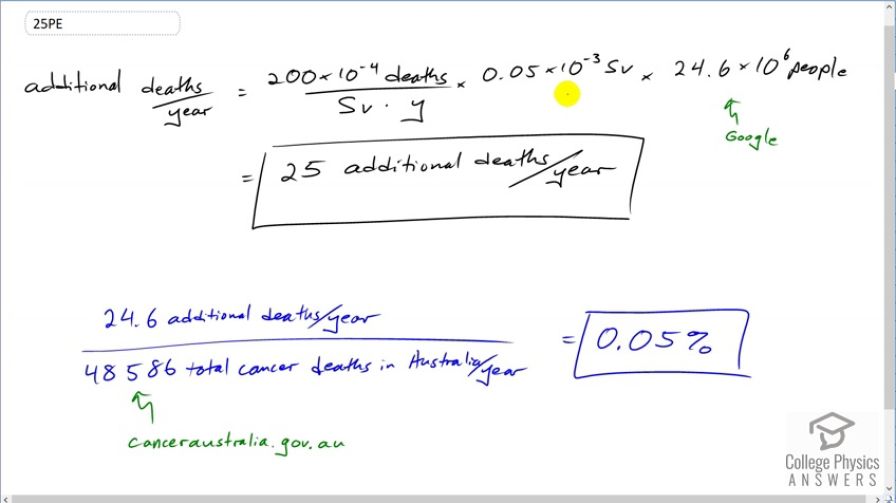 25PE
additional deaths/year = 200×10⁻⁴ deaths/Sv · y × 0.05×10⁻³ Sv × 24.6×10⁶ people
Google
= 25 additional deaths/year
24.6 additional deaths/year
= 0.05%
48586 total cancer deaths in Australia/year
canceraustralia.gov.au
College Physics
ANSWERS